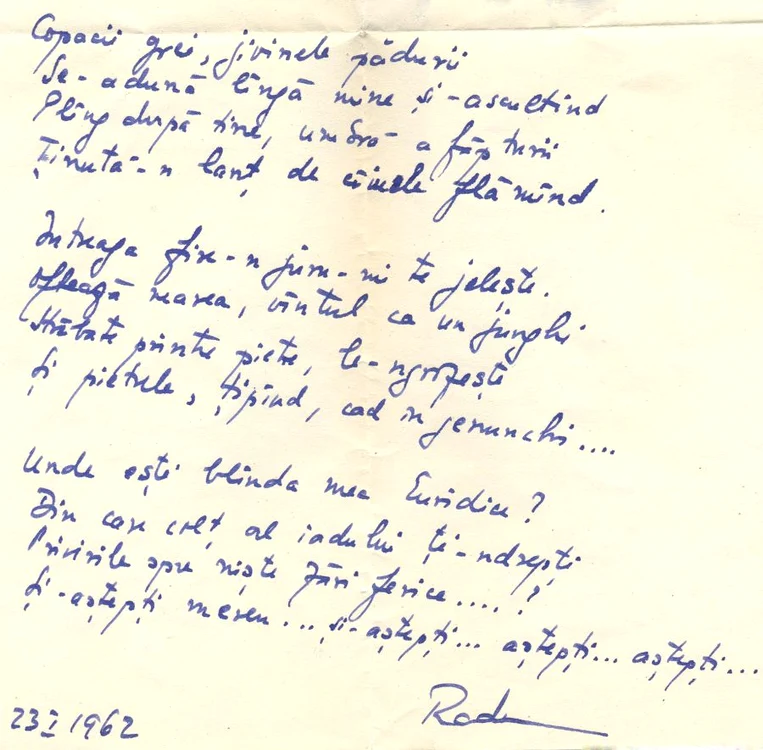 Copacii grei, jivinele pădurii
Se-adună lîngă mine și-ascultînd
Plîng după tine, umbră a făpturii
Ținută-n lanț de cîinele flămînd.
Întreaga fire-n juru-mi te jelește.
Oftează marea, vîntul ca un junghi
Străbate printre pietre, le-ngrozește
Și pietrele, țipînd, cad în genunchi....
Unde ești blînda mea Euridice?
Din care colț al iadului ți-ndrepți
Privirile spre niște zări ferice....?
Și-aștepți mereu... și-aștepți... aștepți... aștepți...
Radu
23 I 1962